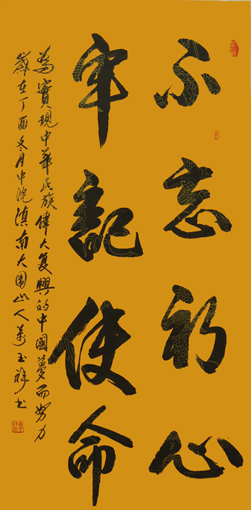 不忘初心
牢記使命
為實現中華民族偉大复興的中國夢而努力
歲在丁酉冬月中浣滇南大圍山人玉祥书